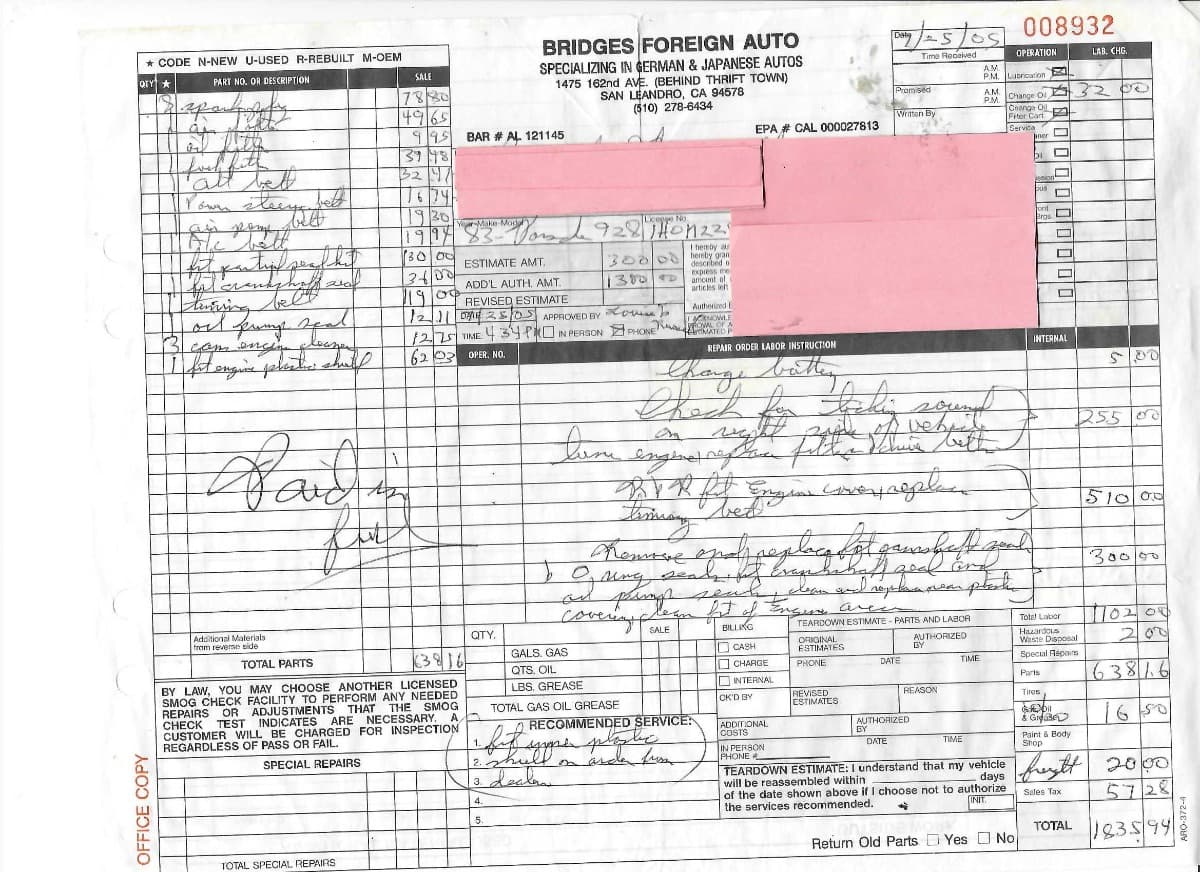 008932
BRIDGES FOREIGN AUTO
SPECIALIZING IN GERMAN & JAPANESE AUTOS
1475 162nd AVE. (BEHIND THRIFT TOWN)
SAN LEANDRO, CA 94578
(510) 278-6434
BAR # AL 121145
EPA # CAL 000027813
Date
Time Received
A.M.
P.M.
Promised
A.M.
P.M.
Written By
OPERATION LAB. CHG.
Lubrication
Change Oil 32 00
Change Oil
Filter Cart.
Service
★ CODE N-NEW U-USED R-REBUILT M-OEM
QTY ★ PART NO. OR DESCRIPTION SALE
8 spark plug 78 80
air filter 49 65
1 oil filter 9 95
1 fuel filter 39 48
1 alt belt 32 47
1 Power steery belt 16 74
1 air pump belt 19 30
1 A/c belt 19 94
1 frt partial seal kit 130 00
1 frt crankshaft seal 36 00
1 timing belt 119 00
1 oil pump seal 12 11
3 cans engine cleaner 12 75
1 frt engine plastic shield 62 03
Year-Make-Model
83-Porsche 928
License No.
ESTIMATE AMT. 300 00
ADD'L AUTH. AMT. 1380 00
REVISED ESTIMATE
DATE APPROVED BY
TIME 4:34 PM IN PERSON PHONE
I hereby au
hereby gran
described
express me
amount of
articles left
Authorized
REPAIR ORDER LABOR INSTRUCTION
OPER. NO.
INTERNAL
Change battery 5 00
Check for ticking sound
on right side of vehicle 255 00
tune engine, replace filters & drive belts
R & R frt Engine cover, replace 510 00
timing belt
Remove and replace frt camshaft seals 300 00
O ring seals, frt crankshaft seal and
oil pump seals, clean and replace near plastic
covering, clean frt of Engine area
Paid in
full
Additional Materials
from reverse side
TOTAL PARTS 638 16
BY LAW, YOU MAY CHOOSE ANOTHER LICENSED
SMOG CHECK FACILITY TO PERFORM ANY NEEDED
REPAIRS OR ADJUSTMENTS THAT THE SMOG
CHECK TEST INDICATES ARE NECESSARY. A
CUSTOMER WILL BE CHARGED FOR INSPECTION
REGARDLESS OF PASS OR FAIL.
SPECIAL REPAIRS
TOTAL SPECIAL REPAIRS
OFFICE COPY
QTY. SALE
GALS. GAS
QTS. OIL
LBS. GREASE
TOTAL GAS OIL GREASE
RECOMMENDED SERVICE:
1. frt upper plastic
2. shield on order from
3. dealer
4.
5.
BILLING
CASH
CHARGE
INTERNAL
OK'D BY
ADDITIONAL
COSTS
IN PERSON
PHONE #
TEARDOWN ESTIMATE - PARTS AND LABOR
ORIGINAL
ESTIMATES
AUTHORIZED
BY
PHONE DATE TIME
REVISED
ESTIMATES
REASON
AUTHORIZED
BY
DATE TIME
TEARDOWN ESTIMATE: I understand that my vehicle
will be reassembled within days
of the date shown above if I choose not to authorize
the services recommended.
INIT.
Return Old Parts Yes No
Total Labor 1102 00
Hazardous
Waste Disposal 2 00
Special Repairs
Parts 638 16
Tires
Gas, Oil
& Grease 16 50
Paint & Body
Shop
freight 20 00
Sales Tax 57 28
TOTAL 1835 94
ARO-372-4